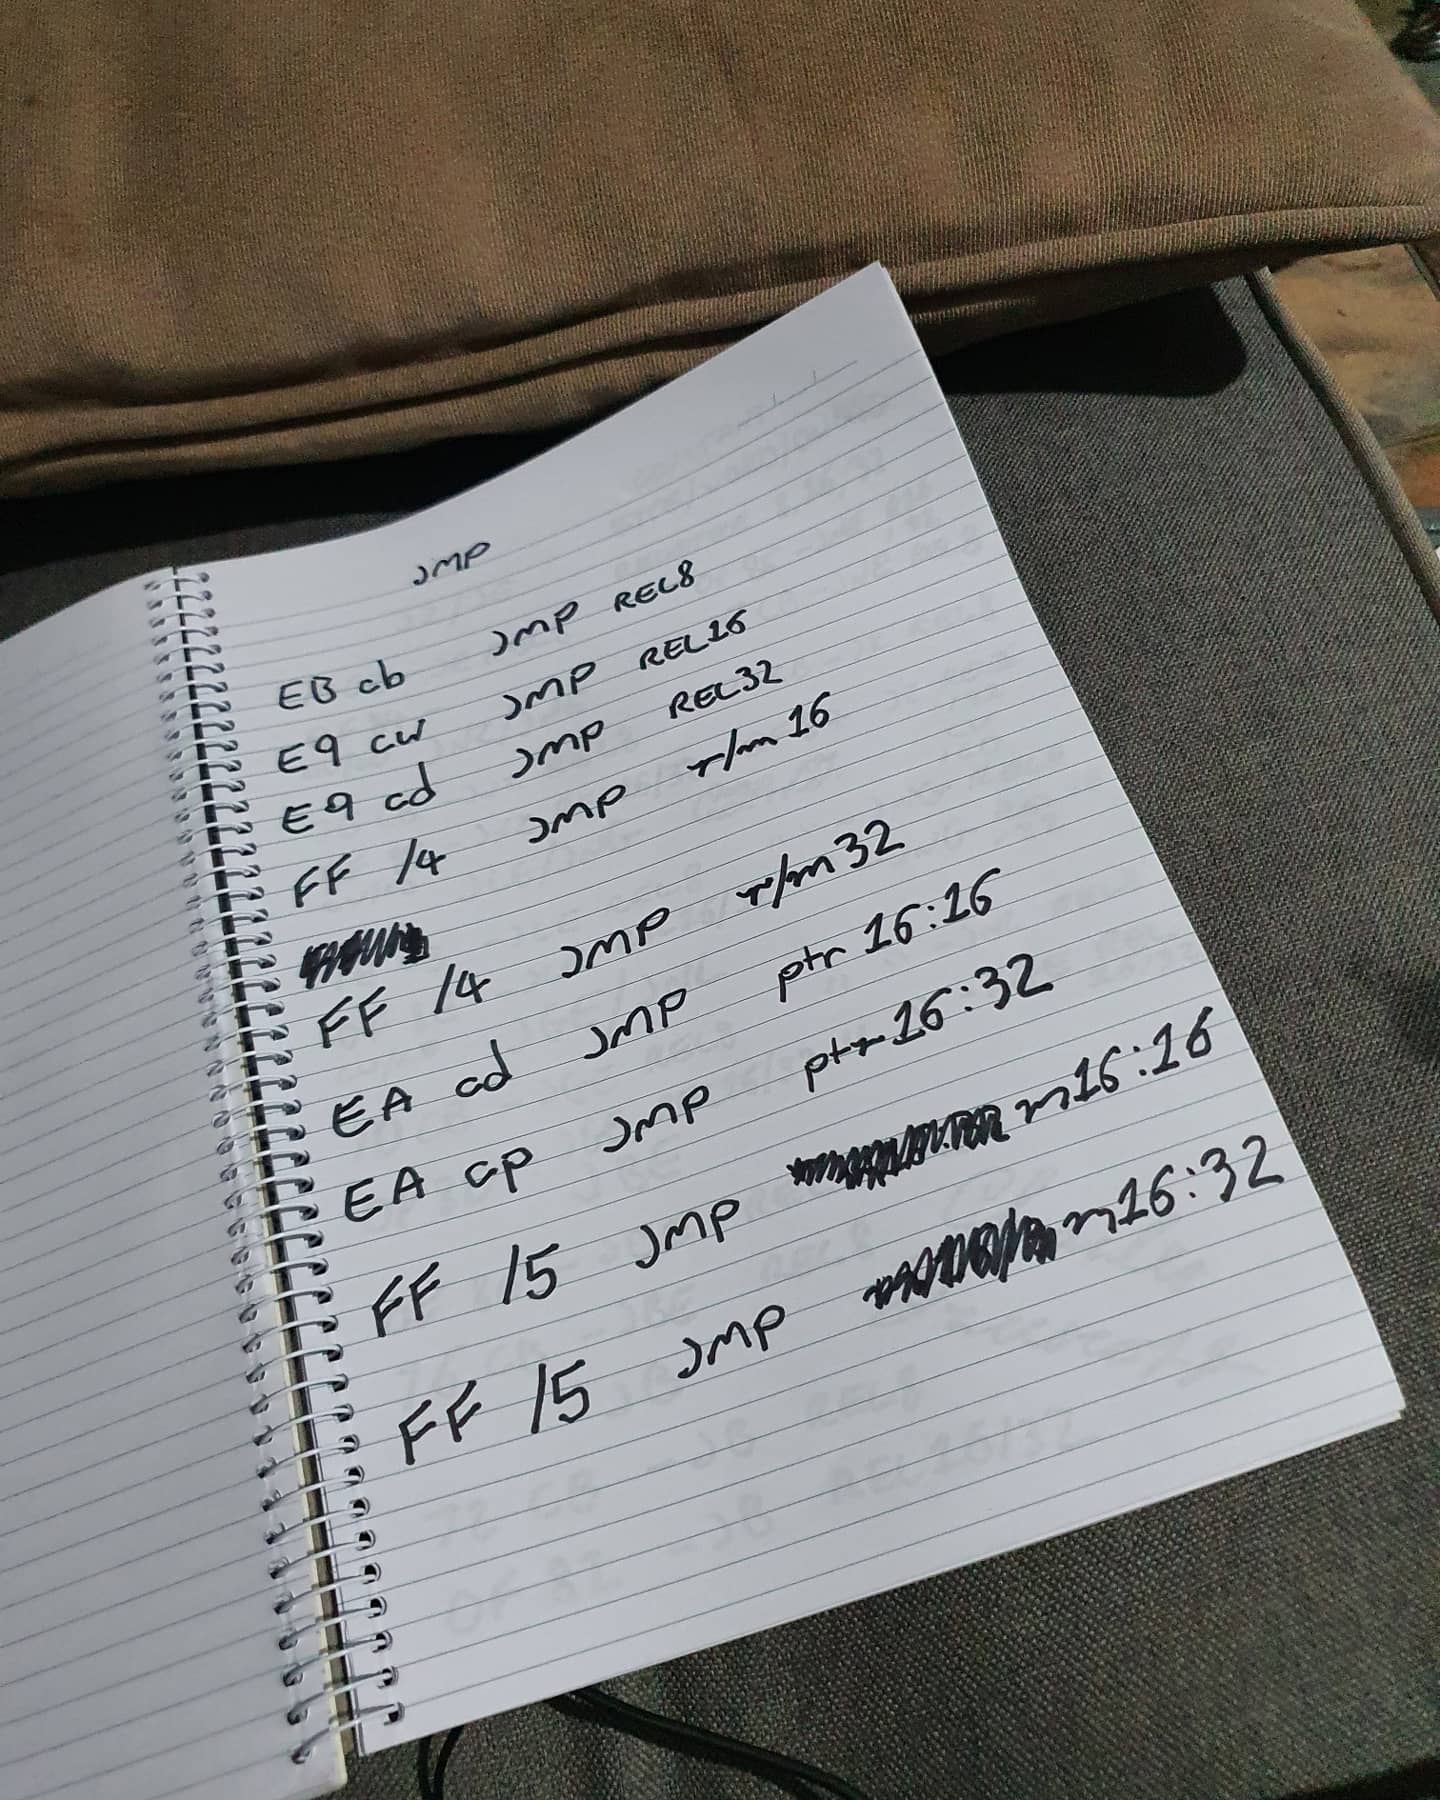 JMP
EB cb JMP REL8
E9 cw JMP REL16
E9 cd JMP REL32
FF /4 JMP r/m16
FF /4 JMP r/m32
EA cd JMP ptr 16:16
EA cp JMP ptr 16:32
FF /5 JMP m16:16
FF /5 JMP m16:32